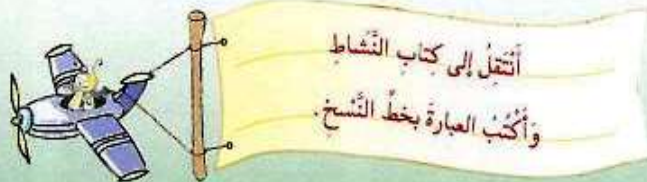 أَنْتَقِلُ إلى كِتابِ النَّشاطِ
وَأَكْتُبُ العبارةَ بخطِّ النَّسخِ.